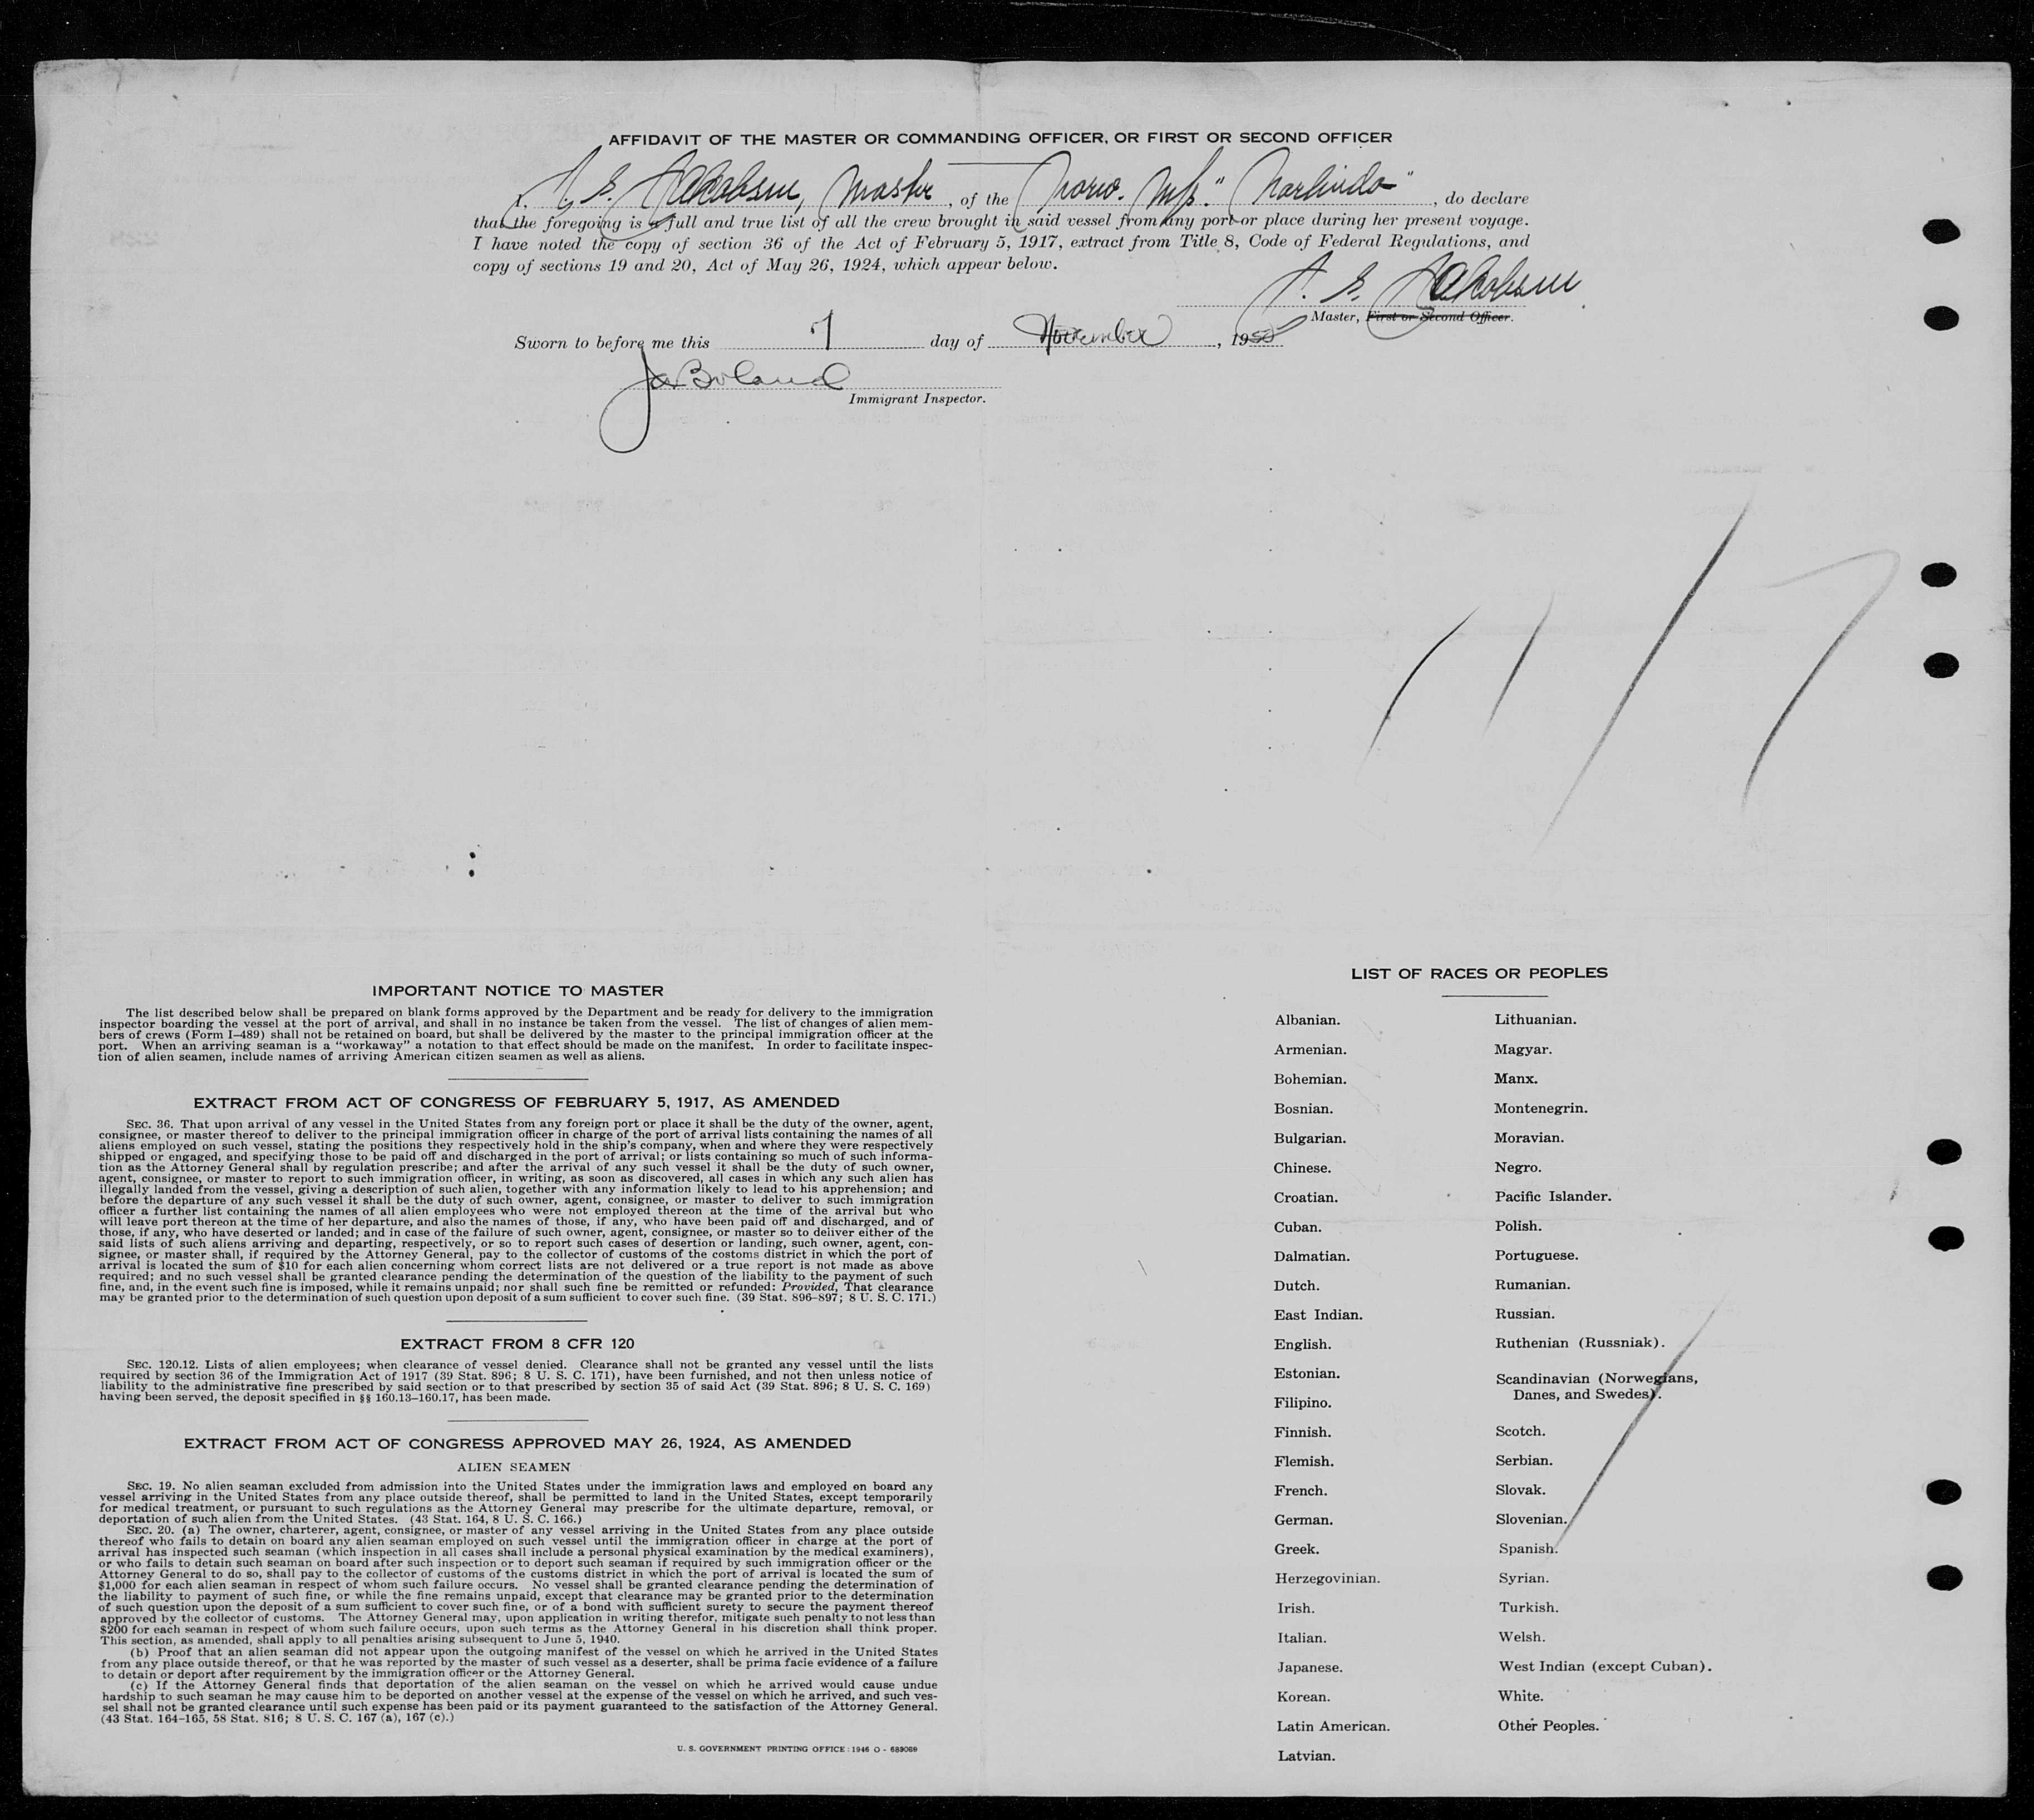 AFFIDAVIT OF THE MASTER OR COMMANDING OFFICER, OR FIRST OR SECOND OFFICER
I, Jakobsen, Master, of the Norw. M/S. " ", do declare
that the foregoing is a full and true list of all the crew brought in said vessel from any port or place during her present voyage.
I have noted the copy of section 36 of the Act of February 5, 1917, extract from Title 8, Code of Federal Regulations, and
copy of sections 19 and 20, Act of May 26, 1924, which appear below.
Jakobsen
Master, First or Second Officer.
Sworn to before me this 7 day of November, 1950
Boland
Immigrant Inspector.
11/7
IMPORTANT NOTICE TO MASTER
The list described below shall be prepared on blank forms approved by the Department and be ready for delivery to the immigration
inspector boarding the vessel at the port of arrival, and shall in no instance be taken from the vessel. The list of changes of alien mem-
bers of crews (Form I-489) shall not be retained on board, but shall be delivered by the master to the principal immigration officer at the
port. When an arriving seaman is a "workaway" a notation to that effect should be made on the manifest. In order to facilitate inspec-
tion of alien seamen, include names of arriving American citizen seamen as well as aliens.
EXTRACT FROM ACT OF CONGRESS OF FEBRUARY 5, 1917, AS AMENDED
SEC. 36. That upon arrival of any vessel in the United States from any foreign port or place it shall be the duty of the owner, agent,
consignee, or master thereof to deliver to the principal immigration officer in charge of the port of arrival lists containing the names of all
aliens employed on such vessel, stating the positions they respectively hold in the ship's company, when and where they were respectively
shipped or engaged, and specifying those to be paid off and discharged in the port of arrival; or lists containing so much of such informa-
tion as the Attorney General shall by regulation prescribe; and after the arrival of any such vessel it shall be the duty of such owner,
agent, consignee, or master to report to such immigration officer, in writing, as soon as discovered, all cases in which any such alien has
illegally landed from the vessel, giving a description of such alien, together with any information likely to lead to his apprehension; and
before the departure of any such vessel it shall be the duty of such owner, agent, consignee, or master to deliver to such immigration
officer a further list containing the names of all alien employees who were not employed thereon at the time of the arrival but who
will leave port thereon at the time of her departure, and also the names of those, if any, who have been paid off and discharged, and of
those, if any, who have deserted or landed; and in case of the failure of such owner, agent, consignee, or master so to deliver either of the
said lists of such aliens arriving and departing, respectively, or so to report such cases of desertion or landing, such owner, agent, con-
signee, or master shall, if required by the Attorney General, pay to the collector of customs of the costoms district in which the port of
arrival is located the sum of $10 for each alien concerning whom correct lists are not delivered or a true report is not made as above
required; and no such vessel shall be granted clearance pending the determination of the question of the liability to the payment of such
fine, and, in the event such fine is imposed, while it remains unpaid; nor shall such fine be remitted or refunded: Provided, That clearance
may be granted prior to the determination of such question upon deposit of a sum sufficient to cover such fine. (39 Stat. 896-897; 8 U. S. C. 171.)
EXTRACT FROM 8 CFR 120
SEC. 120.12. Lists of alien employees; when clearance of vessel denied. Clearance shall not be granted any vessel until the lists
required by section 36 of the Immigration Act of 1917 (39 Stat. 896; 8 U. S. C. 171), have been furnished, and not then unless notice of
liability to the administrative fine prescribed by said section or to that prescribed by section 35 of said Act (39 Stat. 896; 8 U. S. C. 169)
having been served, the deposit specified in §§ 160.13-160.17, has been made.
EXTRACT FROM ACT OF CONGRESS APPROVED MAY 26, 1924, AS AMENDED
ALIEN SEAMEN
SEC. 19. No alien seaman excluded from admission into the United States under the immigration laws and employed on board any
vessel arriving in the United States from any place outside thereof, shall be permitted to land in the United States, except temporarily
for medical treatment, or pursuant to such regulations as the Attorney General may prescribe for the ultimate departure, removal, or
deportation of such alien from the United States. (43 Stat. 164, 8 U. S. C. 166.)
SEC. 20. (a) The owner, charterer, agent, consignee, or master of any vessel arriving in the United States from any place outside
thereof who fails to detain on board any alien seaman employed on such vessel until the immigration officer in charge at the port of
arrival has inspected such seaman (which inspection in all cases shall include a personal physical examination by the medical examiners),
or who fails to detain such seaman on board after such inspection or to deport such seaman if required by such immigration officer or the
Attorney General to do so, shall pay to the collector of customs of the customs district in which the port of arrival is located the sum of
$1,000 for each alien seaman in respect of whom such failure occurs. No vessel shall be granted clearance pending the determination of
the liability to payment of such fine, or while the fine remains unpaid, except that clearance may be granted prior to the determination
of such question upon the deposit of a sum sufficient to cover such fine, or of a bond with sufficient surety to secure the payment thereof
approved by the collector of customs. The Attorney General may, upon application in writing therefor, mitigate such penalty to not less than
$200 for each seaman in respect of whom such failure occurs, upon such terms as the Attorney General in his discretion shall think proper.
This section, as amended, shall apply to all penalties arising subsequent to June 5, 1940.
(b) Proof that an alien seaman did not appear upon the outgoing manifest of the vessel on which he arrived in the United States
from any place outside thereof, or that he was reported by the master of such vessel as a deserter, shall be prima facie evidence of a failure
to detain or deport after requirement by the immigration officer or the Attorney General.
(c) If the Attorney General finds that deportation of the alien seaman on the vessel on which he arrived would cause undue
hardship to such seaman he may cause him to be deported on another vessel at the expense of the vessel on which he arrived, and such ves-
sel shall not be granted clearance until such expense has been paid or its payment guaranteed to the satisfaction of the Attorney General.
(43 Stat. 164-165, 58 Stat. 816; 8 U. S. C. 167 (a), 167 (c).)
U. S. GOVERNMENT PRINTING OFFICE : 1946 O - 689069
LIST OF RACES OR PEOPLES
Albanian.
Armenian.
Bohemian.
Bosnian.
Bulgarian.
Chinese.
Croatian.
Cuban.
Dalmatian.
Dutch.
East Indian.
English.
Estonian.
Filipino.
Finnish.
Flemish.
French.
German.
Greek.
Herzegovinian.
Irish.
Italian.
Japanese.
Korean.
Latin American.
Latvian.
Lithuanian.
Magyar.
Manx.
Montenegrin.
Moravian.
Negro.
Pacific Islander.
Polish.
Portuguese.
Rumanian.
Russian.
Ruthenian (Russniak).
Scandinavian (Norwegians,
Danes, and Swedes).
Scotch.
Serbian.
Slovak.
Slovenian.
Spanish.
Syrian.
Turkish.
Welsh.
West Indian (except Cuban).
White.
Other Peoples.